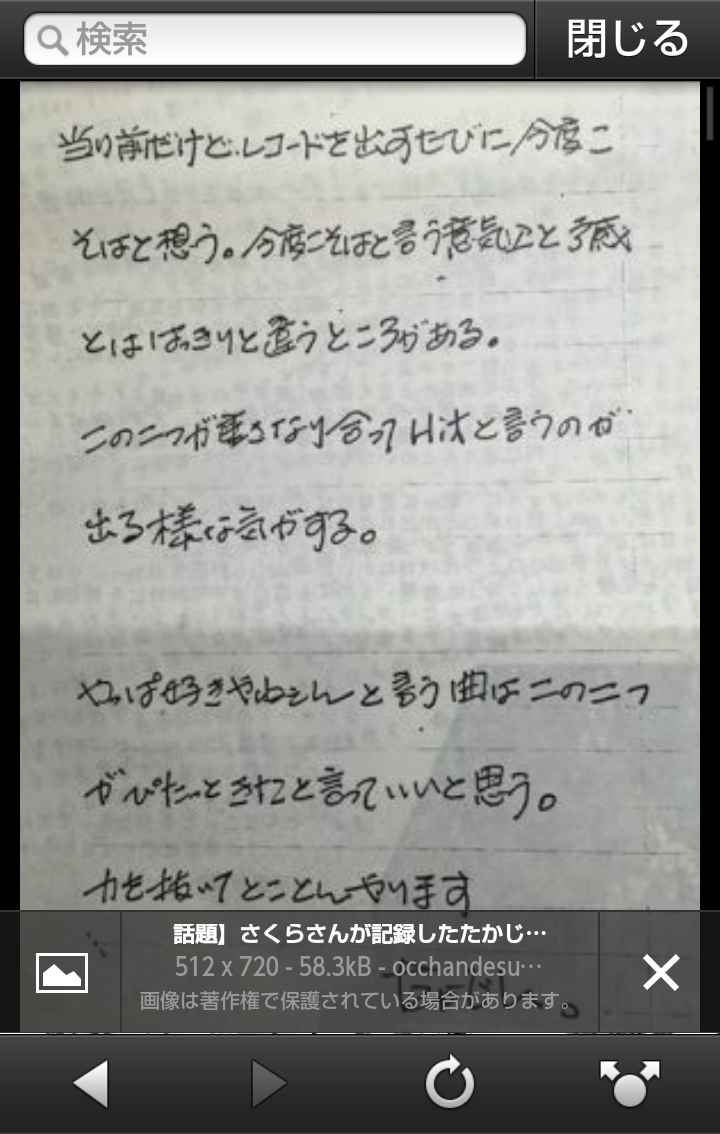 検索
閉じる
当り前だけど、レコードを出すたびに今度こ
そはと想う。今度こそはと言う意気込と予感
とははっきりと違うところがある。
この二つが重さなり合ってHitと言うのが
出る様な気がする。
やっぱ好きやねんと言う曲は二の二つ
がぴたーときたこと言っていいと思う。
力を抜いてとことんやります
話題】さくらさんが記録したたかじ…
512 x 720 - 58.3kB - occhandesu…
画像は著作権で保護されている場合があります。